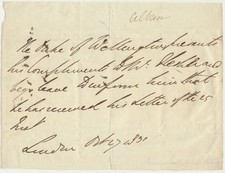 The Duke of Wellington presents
his Compliments to Mr. and
begs leave to inform him that
he has received his Letter of the 25
Inst
London Oct 27 1831